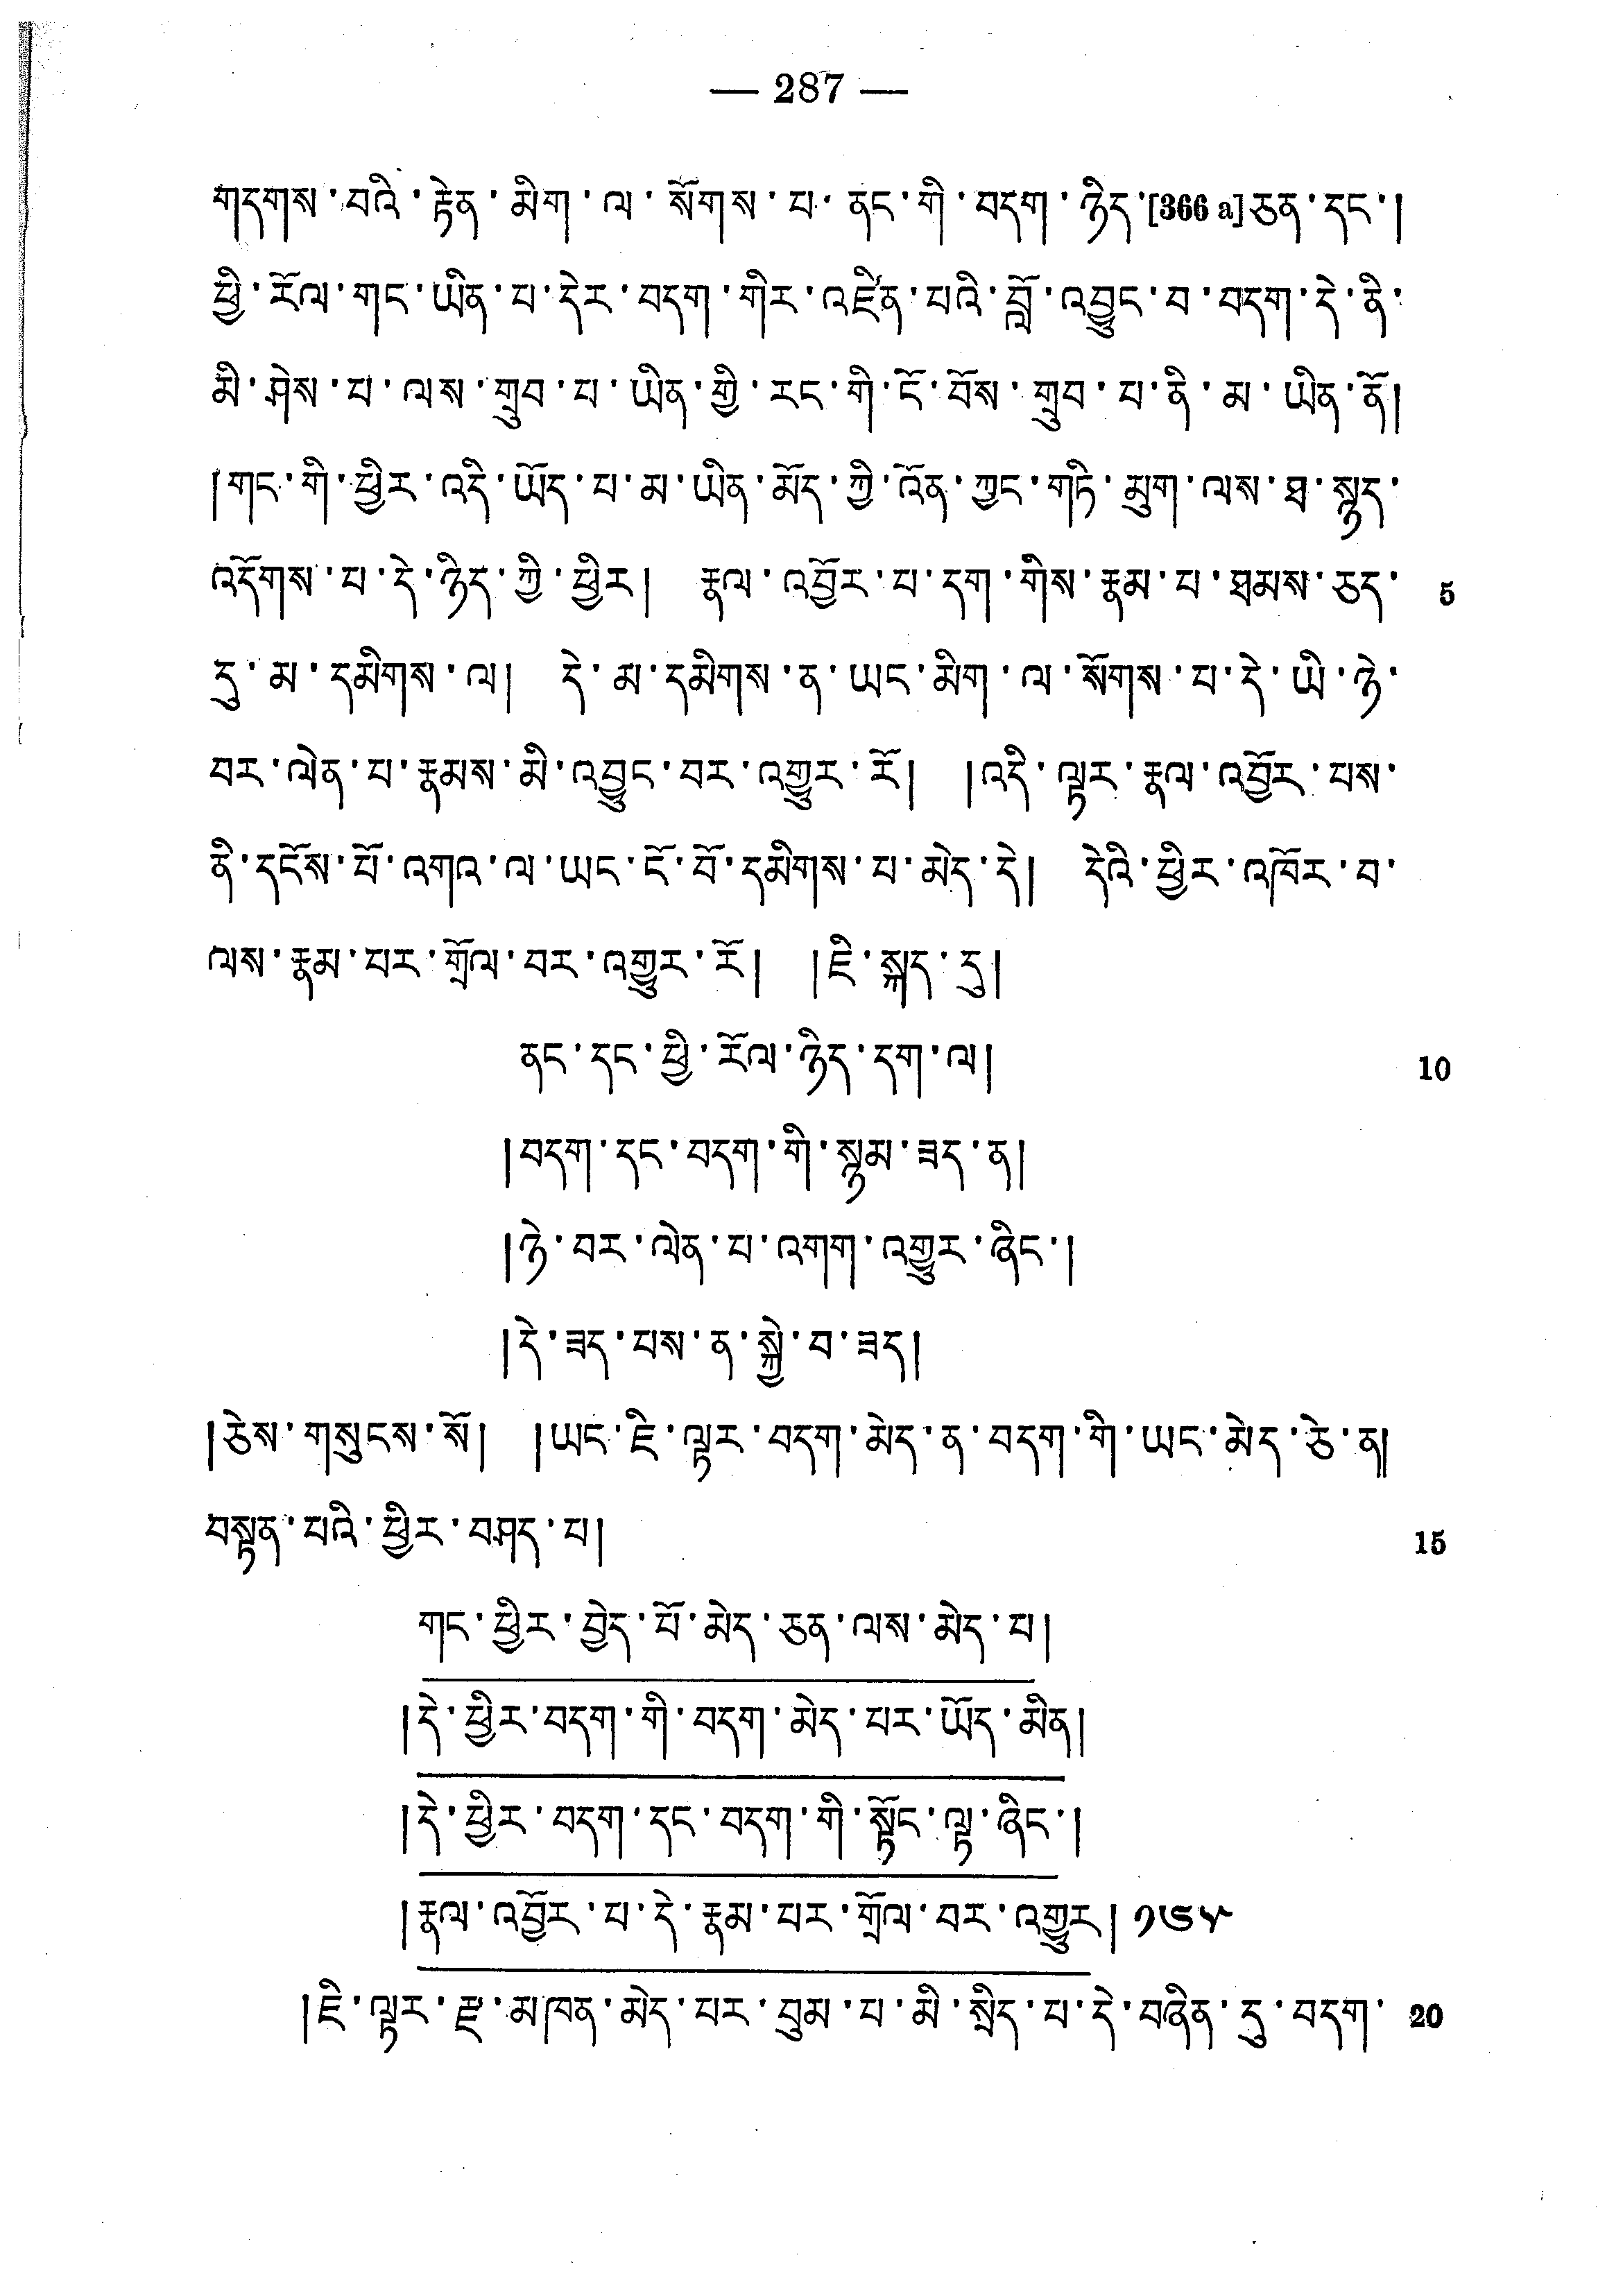 — 287 —
གདགས་བའི་རྟེན་མིག་ལ་སོགས་པ་ནང་གི་བདག་ཉིད་[366 a]ཅན་དང་།
ཕྱི་རོལ་གང་ཡིན་པ་དེར་བདག་གིར་འཛིན་པའི་བློ་འབྱུང་བ་བདག་དེ་ནི་
མི་ཤེས་པ་ལས་གྲུབ་པ་ཡིན་གྱི་རང་གི་ངོ་བོས་གྲུབ་པ་ནི་མ་ཡིན་ནོ།
།གང་གི་ཕྱིར་འདི་ཡོད་པ་མ་ཡིན་མོད་ཀྱི་འོན་ཀྱང་གཏི་མུག་ལས་ཐ་སྙད་
འདོགས་པ་དེ་ཉིད་ཀྱི་ཕྱིར། རྣལ་འབྱོར་པ་དག་གིས་རྣམ་པ་ཐམས་ཅད་ 5
དུ་མ་དམིགས་ལ། དེ་མ་དམིགས་ན་ཡང་མིག་ལ་སོགས་པ་དེ་ཡི་ཉེ་
བར་ལེན་པ་རྣམས་མི་འབྱུང་བར་འགྱུར་རོ། །འདི་ལྟར་རྣལ་འབྱོར་པས་
ནི་དངོས་པོ་འགའ་ལ་ཡང་ངོ་བོ་དམིགས་པ་མེད་དེ། དེའི་ཕྱིར་འཁོར་བ་
ལས་རྣམ་པར་གྲོལ་བར་འགྱུར་རོ། །ཇི་སྐད་དུ།
ནང་དང་ཕྱི་རོལ་ཉིད་དག་ལ། 10
།བདག་དང་བདག་གི་སྙམ་ཟད་ན།
།ཉེ་བར་ལེན་པ་འགག་འགྱུར་ཞིང་།
།དེ་ཟད་པས་ན་སྐྱེ་བ་ཟད།
།ཅེས་གསུངས་སོ། །ཡང་ཇི་ལྟར་བདག་མེད་ན་བདག་གི་ཡང་མེད་ཅེ་ན།
བསྟན་པའི་ཕྱིར་བཤད་པ། 15
གང་ཕྱིར་བྱེད་པོ་མེད་ཅན་ལས་མེད་པ།
།དེ་ཕྱིར་བདག་གི་བདག་མེད་པར་ཡོད་མིན།
།དེ་ཕྱིར་བདག་དང་བདག་གི་སྟོང་ལྟ་ཞིང་།
།རྣལ་འབྱོར་པ་དེ་རྣམ་པར་གྲོལ་བར་འགྱུར། ༡༦༥
།ཇི་ལྟར་རྫ་མཁན་མེད་པར་བུམ་པ་མི་སྲིད་པ་དེ་བཞིན་དུ་བདག་ 20